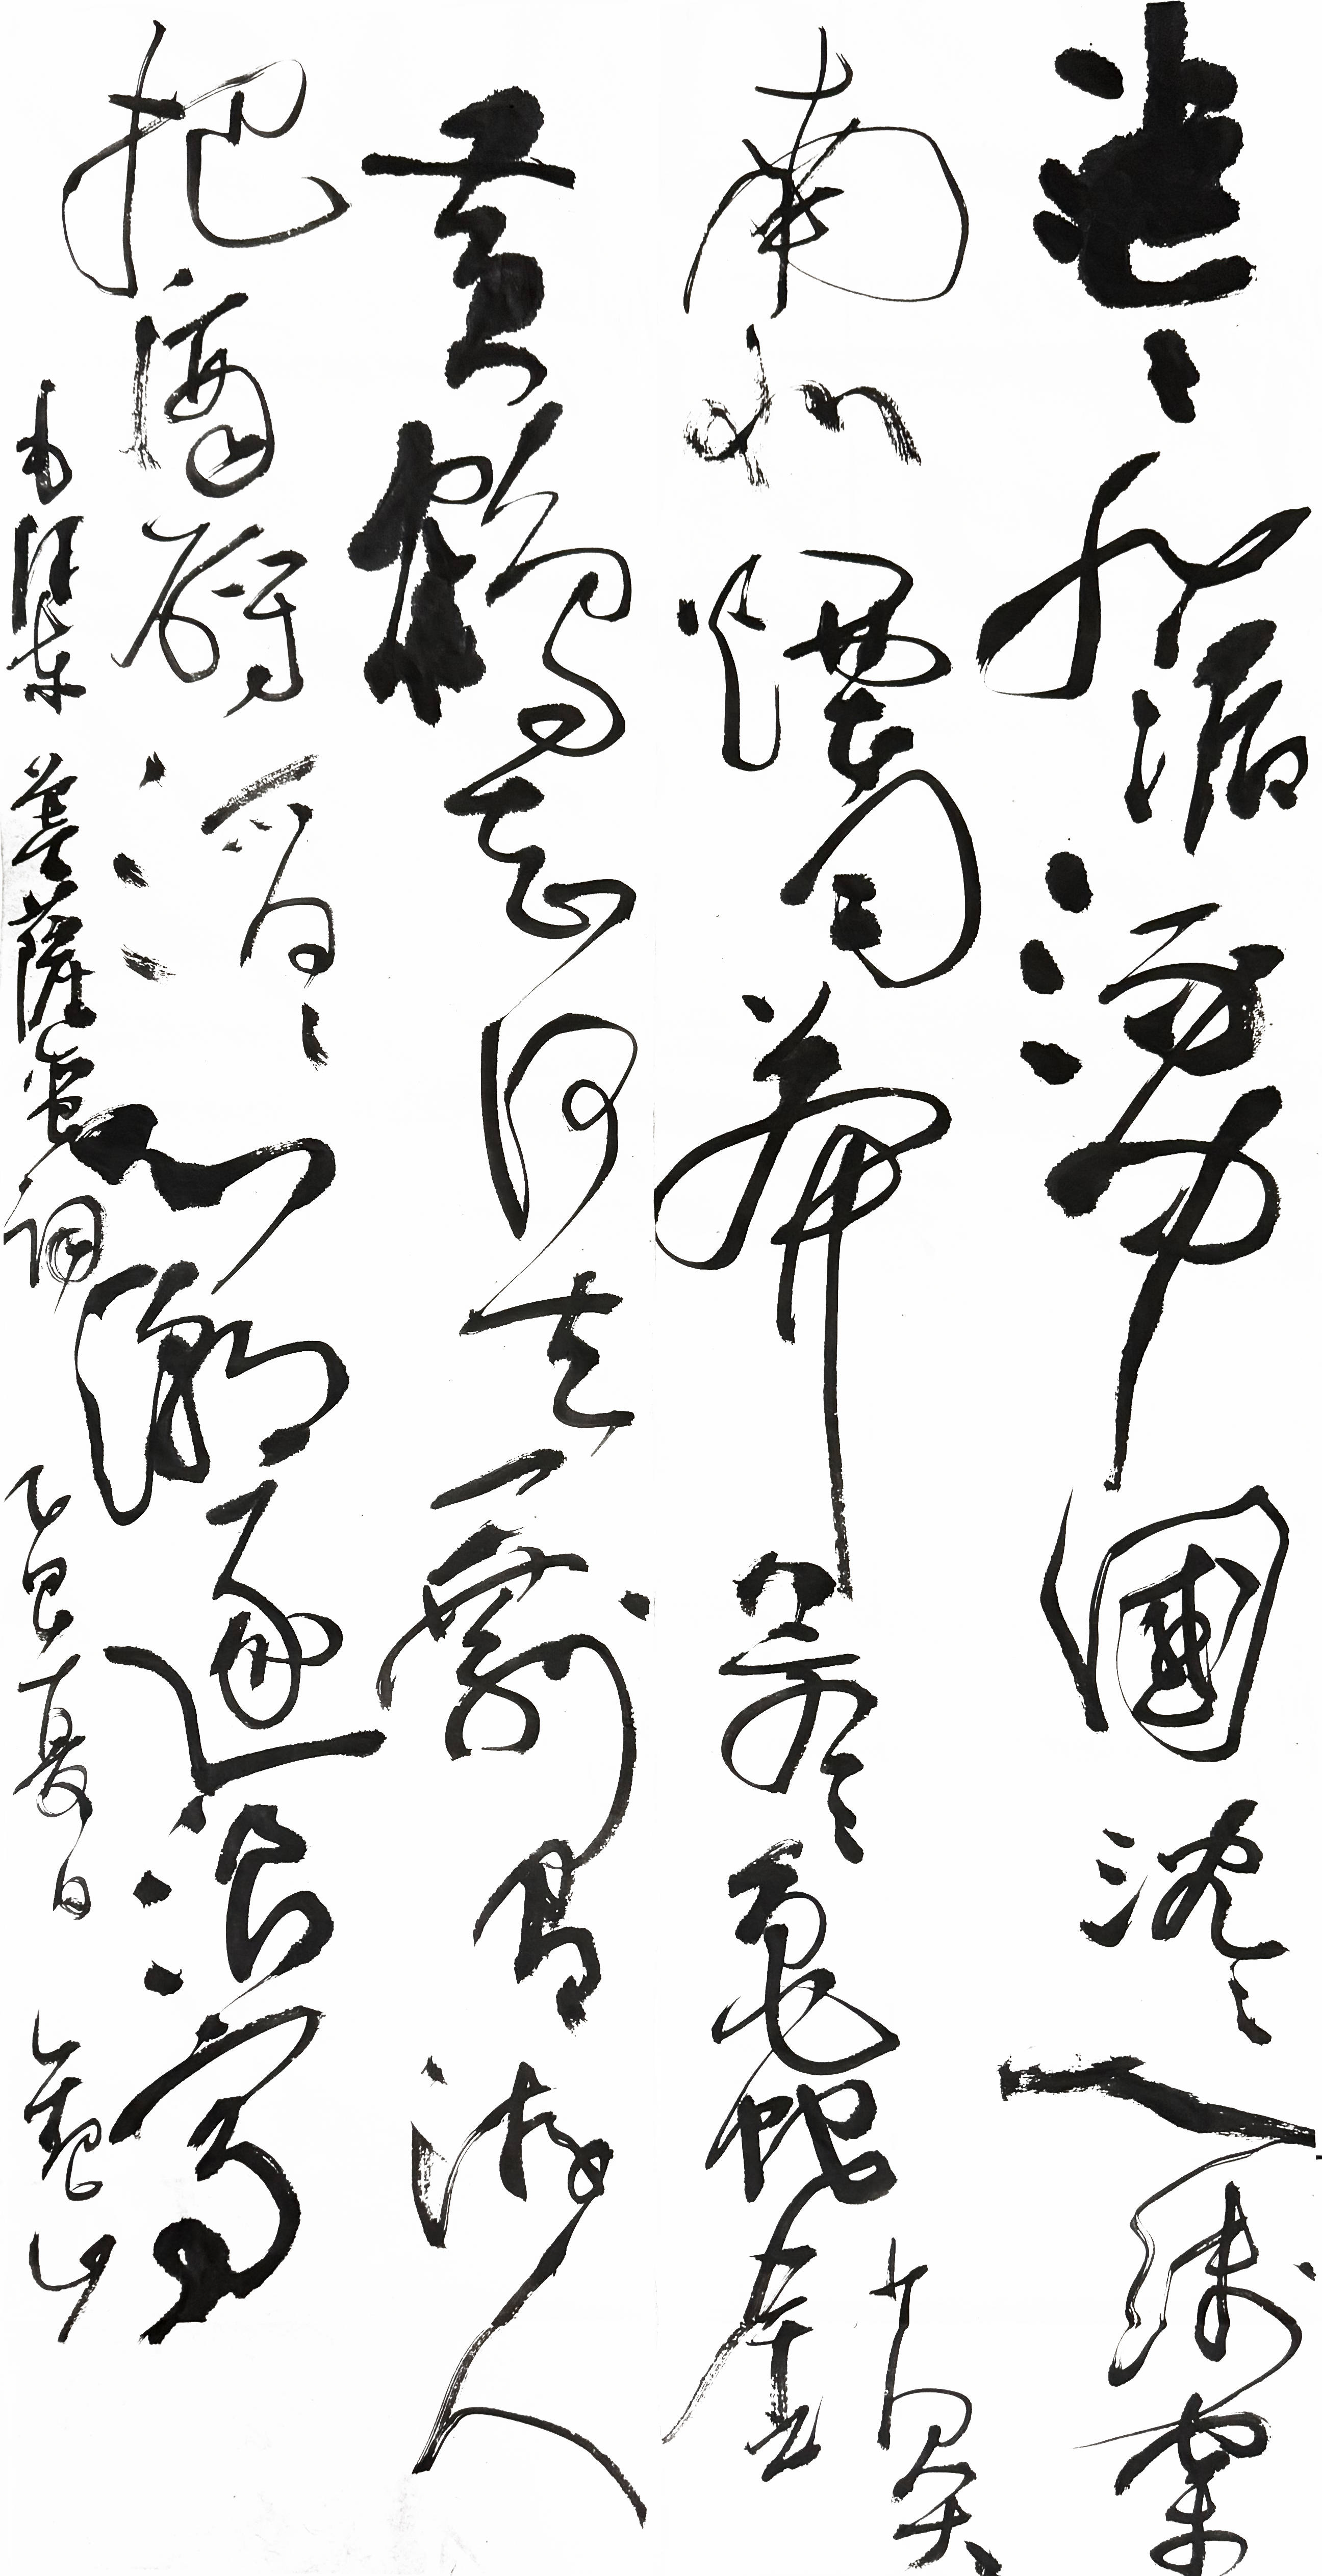 茫々九派流中國沉々一綫穿
南北煙雨莽蒼々龜蛇鎖
黃鶴知何去剩有游人
把酒酹滔々心潮逐浪高
毛澤東 菩薩蠻詞 乙巳夏日